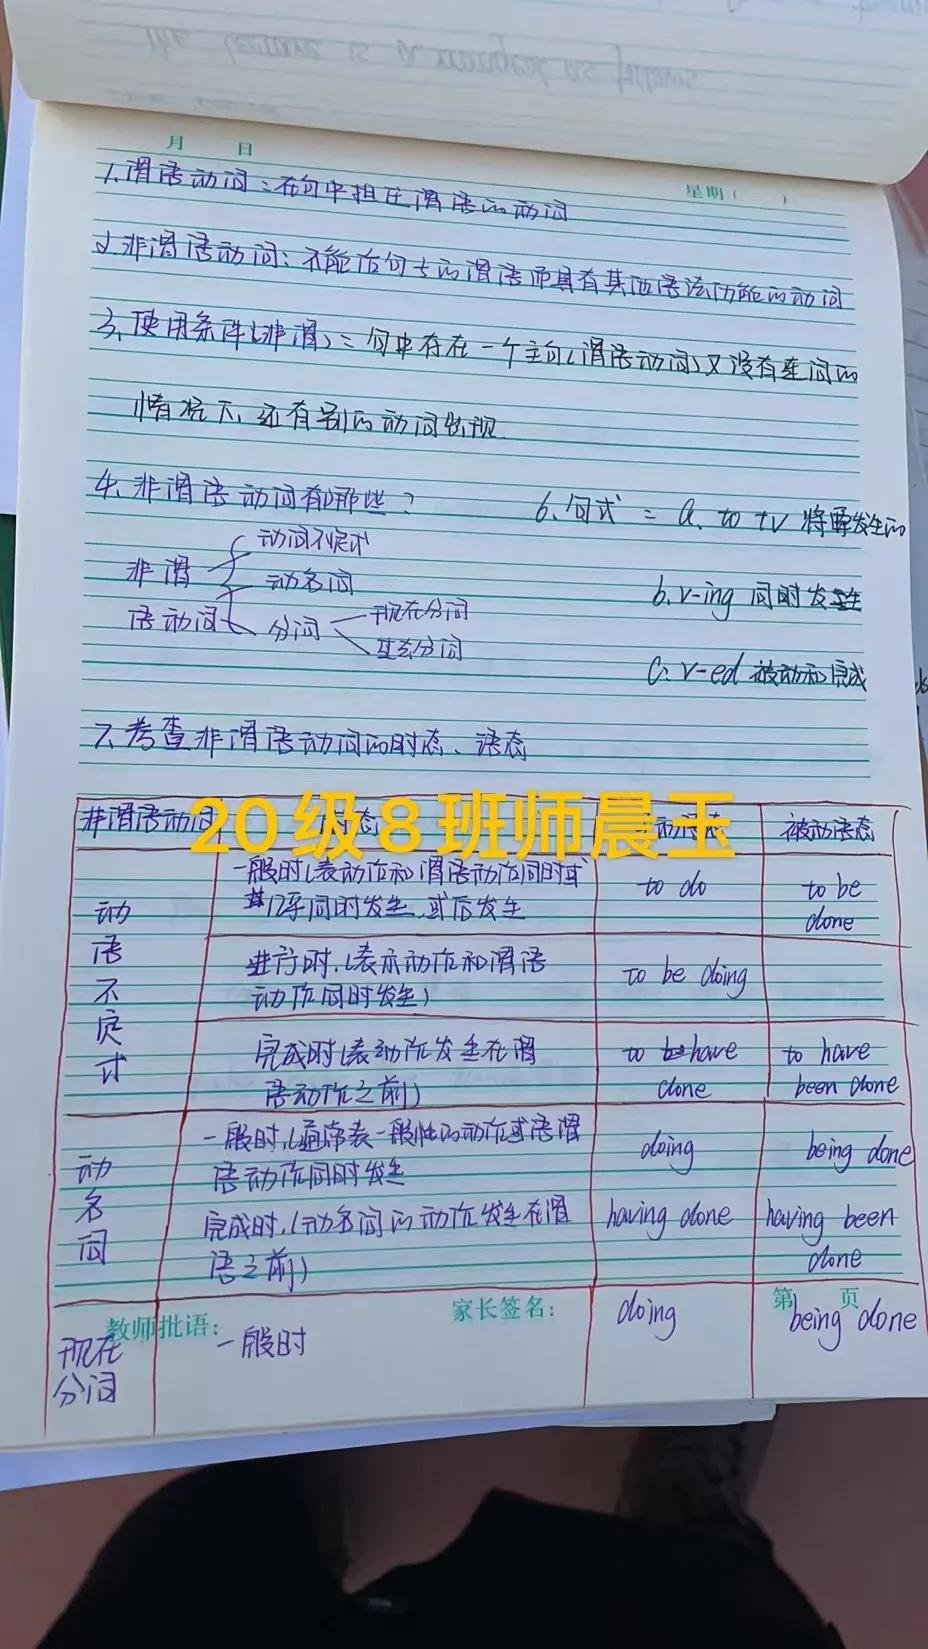 月 日
星期( )
1.谓语动词:在句中担任谓语的动词
2.非谓语动词:不能作句中的谓语而具有其他语法功能的动词
3.使用条件(非谓):句中存在一个主句(谓语动词)又没有连词的
情况下,还有别的动词出现.
4.非谓语动词有哪些?
非谓
语动词
动词不定式
动名词
分词
现在分词
过去分词
6.句式: a. to tv 将要发生的
b. v-ing 同时发生
c. v-ed 被动和完成
7.考查非谓语动词的时态、语态
20级8班师晨玉
非谓语动词 态 动语态 被动语态
动语不定式
一般时(表动作和谓语动作同时或
几乎同时发生,或后发生
to do
to be
done
进行时,(表示动作和谓语
动作同时发生)
to be doing
完成时(表动作发生在谓
语动作之前)
to have
done
to have
been done
动名词
一般时,(通常表一般性的动作或语谓
语动作同时发生
doing
being done
完成时,(动名词的动作发生在谓
语之前)
having done
having been
done
教师批语:
家长签名:
第 页
现在
分词
一般时
doing
being done